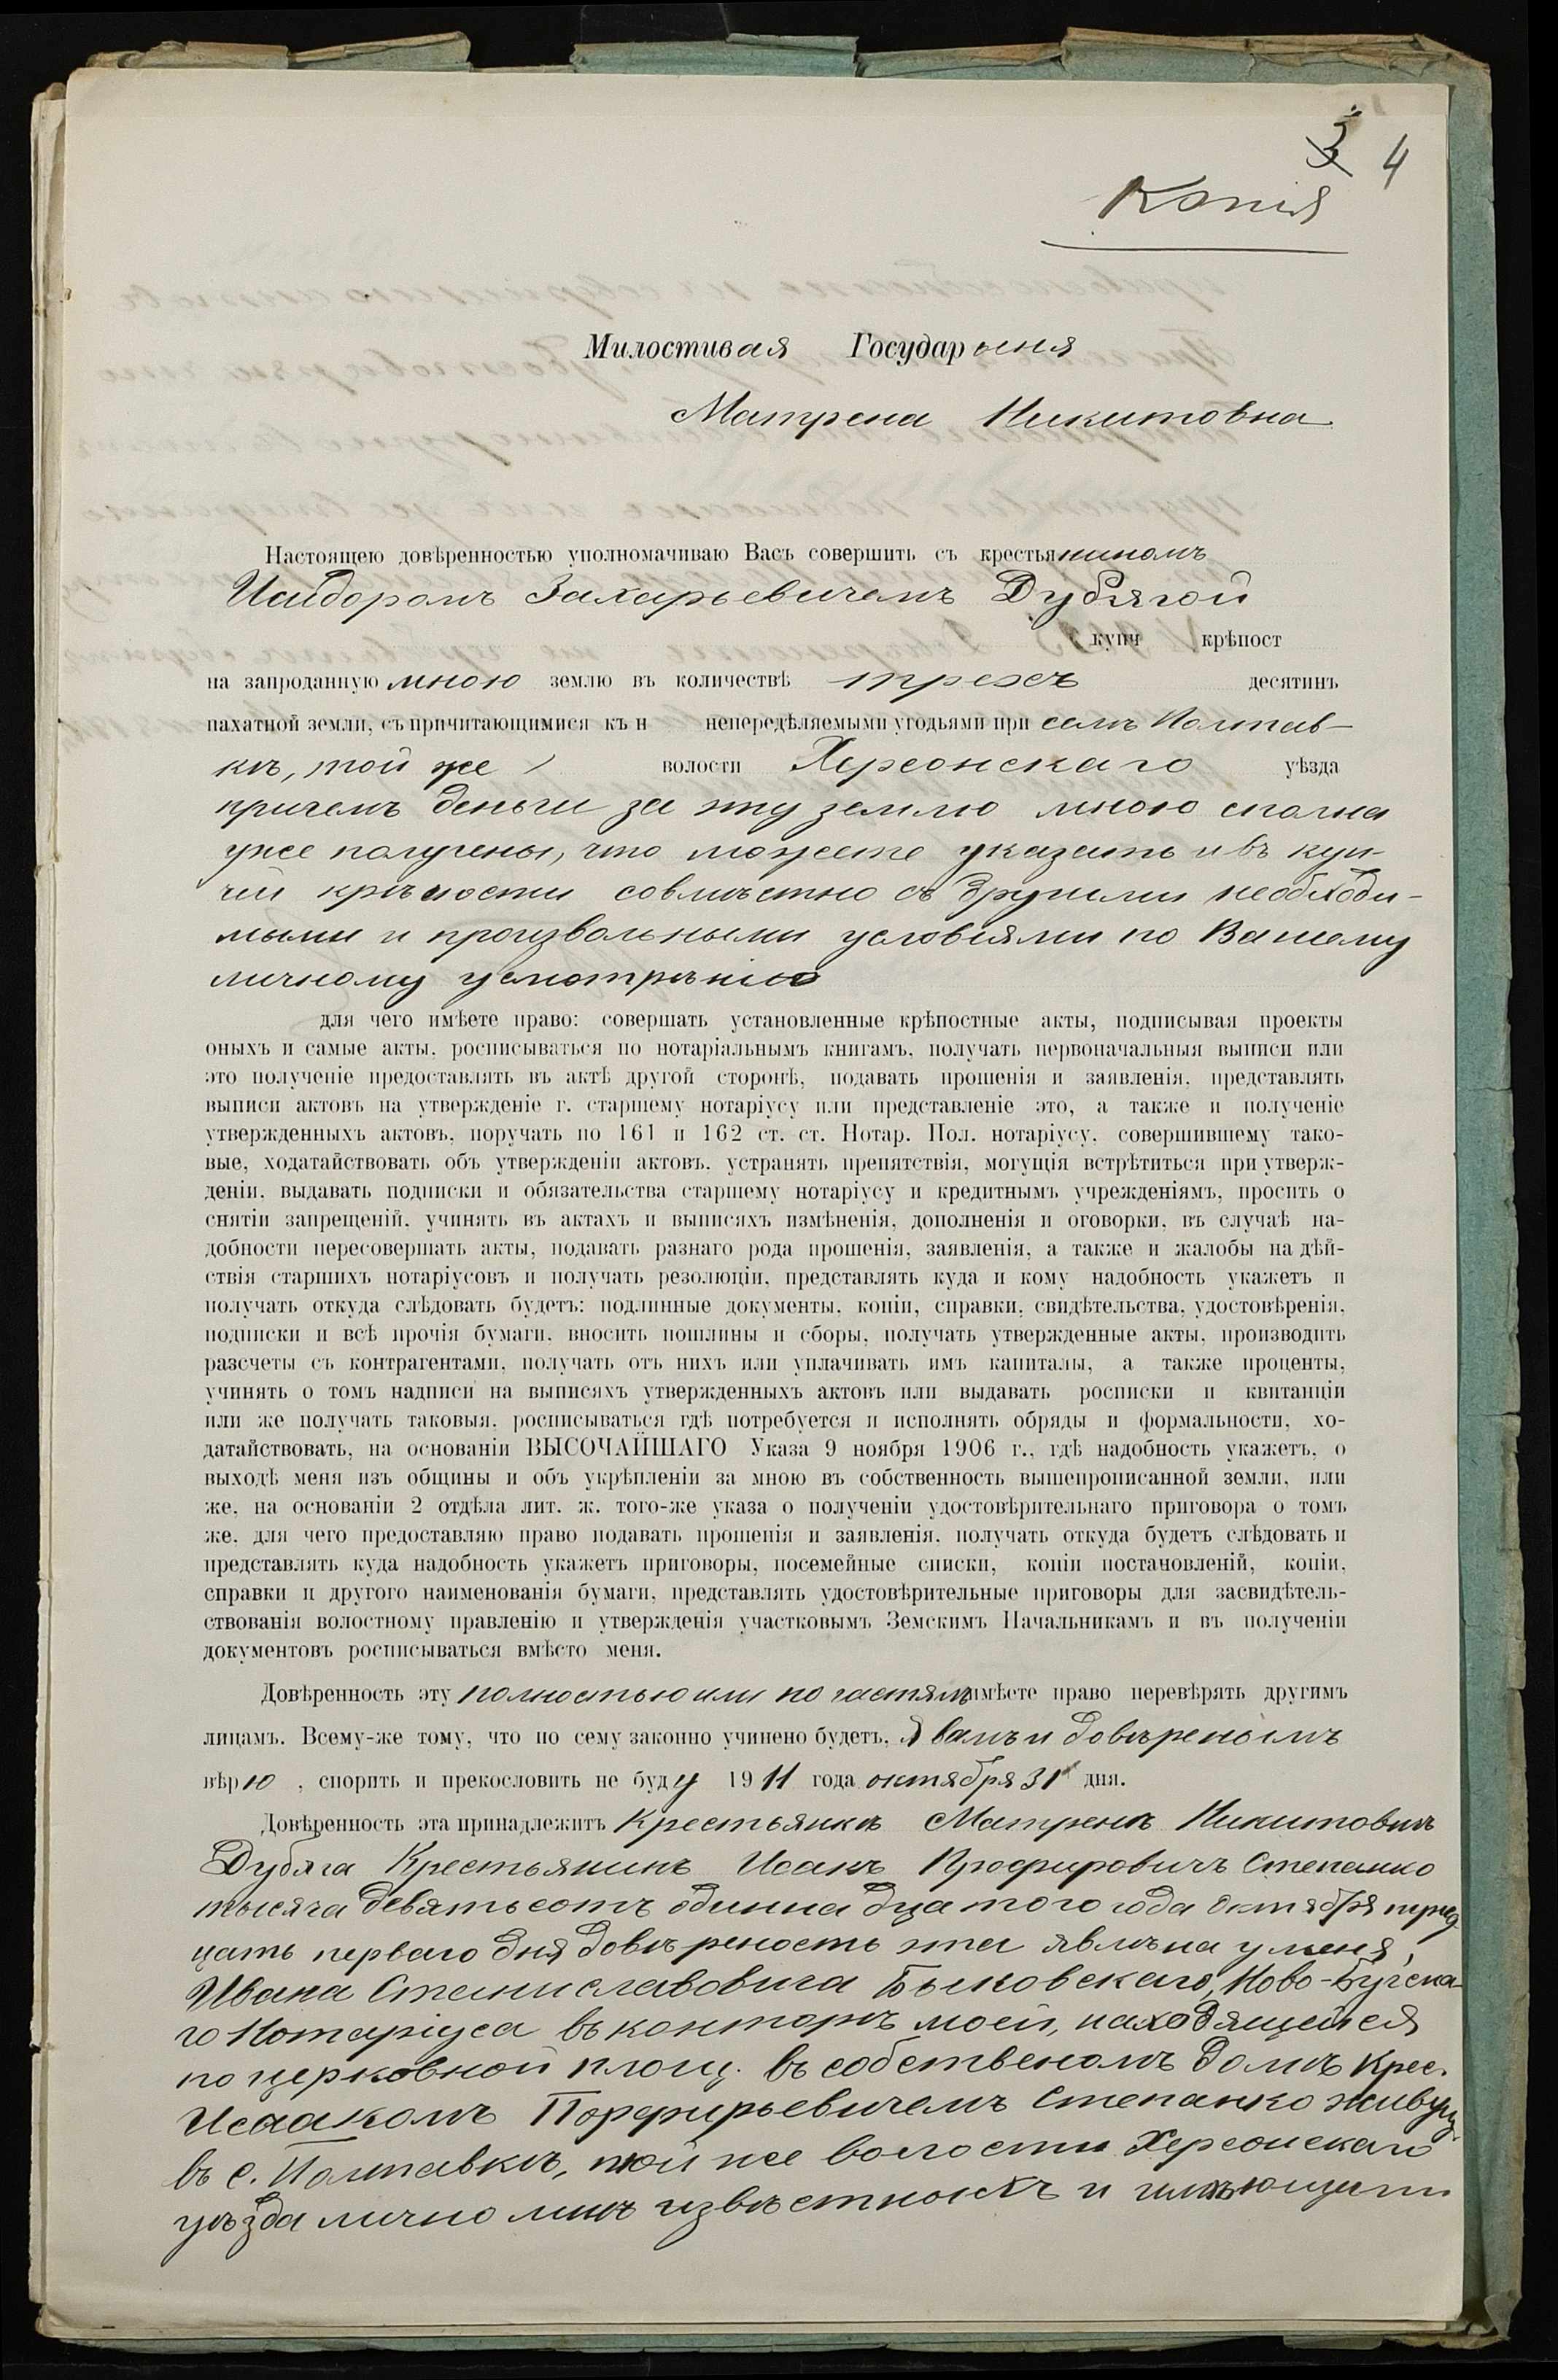 3 4
Копія
Милостивая Государыня
Матрена Никитовна
Настоящею довѣренностью уполномачиваю Васъ совершить съ крестьяниномъ
Исидоромъ Захарьевичемъ Дубягой
купч крѣпост
на запроданную мною землю въ количествѣ трехъ десятинъ
пахатной земли, съ причитающимися къ н непередѣляемыми угодьями при селѣ Полтав-
кѣ, той же волости Херсонскаго уѣзда
причемъ деньги за эту землю мною сполна
уже получены, что можете указать и въ куп-
чей крѣпости совмѣстно съ другими необходи-
мыми и произвольными условіями по Вашему
личному усмотрѣнію
для чего имѣете право: совершать установленные крѣпостные акты, подписывая проекты
оныхъ и самые акты, росписываться по нотаріальнымъ книгамъ, получать первоначальныя выписи или
это полученіе предоставлять въ актѣ другой сторонѣ, подавать прошенія и заявленія, представлять
выписи актовъ на утвержденіе г. старшему нотаріусу или представленіе это, а также и полученіе
утвержденныхъ актовъ, поручать по 161 и 162 ст. ст. Нотар. Пол. нотаріусу, совершившему тако-
вые, ходатайствовать объ утвержденіи актовъ, устранять препятствія, могущія встрѣтиться при утверж-
деніи, выдавать подписки и обязательства старшему нотаріусу и кредитнымъ учрежденіямъ, просить о
снятіи запрещеній, учинять въ актахъ и выписяхъ измѣненія, дополненія и оговорки, въ случаѣ на-
добности пересовершать акты, подавать разнаго рода прошенія, заявленія, а также и жалобы на дѣй-
ствія старшихъ нотаріусовъ и получать резолюціи, представлять куда и кому надобность укажетъ и
получать откуда слѣдовать будетъ: подлинные документы, копіи, справки, свидѣтельства, удостовѣренія,
подписки и всѣ прочія бумаги, вносить пошлины и сборы, получать утвержденные акты, производить
разсчеты съ контрагентами, получать отъ нихъ или уплачивать имъ капиталы, а также проценты,
учинять о томъ надписи на выписяхъ утвержденныхъ актовъ или выдавать росписки и квитанціи
или же получать таковыя, росписываться гдѣ потребуется и исполнять обряды и формальности, хо-
датайствовать, на основаніи ВЫСОЧАЙШАГО Указа 9 ноября 1906 г., гдѣ надобность укажетъ, о
выходѣ меня изъ общины и объ укрѣпленіи за мною въ собственность вышепрописанной земли, или
же, на основаніи 2 отдѣла лит. ж. того-же указа о полученіи удостовѣрительнаго приговора о томъ
же, для чего предоставляю право подавать прошенія и заявленія, получать откуда будетъ слѣдовать и
представлять куда надобность укажетъ приговоры, посемейные списки, копіи постановленій, копіи,
справки и другого наименованія бумаги, представлять удостовѣрительные приговоры для засвидѣтель-
ствованія волостному правленію и утвержденія участковымъ Земскимъ Начальникамъ и въ полученіи
документовъ росписываться вмѣсто меня.
Довѣренность эту полностью или по частямъ имѣете право перевѣрять другимъ
лицамъ. Всему-же тому, что по сему законно учинено будетъ, я вамъ и довѣренымъ
вѣрю, спорить и прекословить не буду 1911 года октября 31 дня.
Довѣренность эта принадлежитъ Крестьянкѣ Матренѣ Никитовнѣ
Дубяга Крестьянинъ Исакъ Профировичъ Степанко
тысяча девятьсотъ одиннадцатого года октября трид
цать перваго дня довѣреность эта явлена у меня,
Ивана Станиславовича Быковскаго, Ново-Бугска-
го Нотаріуса въ конторѣ моей, находящейся
по церковной площ. въ собственомъ домѣ Крес.
Исаакомъ Порфирьевичемъ Степанко живущ.
въ с. Полтавкѣ, той же волости Херсонскаго
уѣзда лично мнѣ извѣстномъ и имѣющимъ